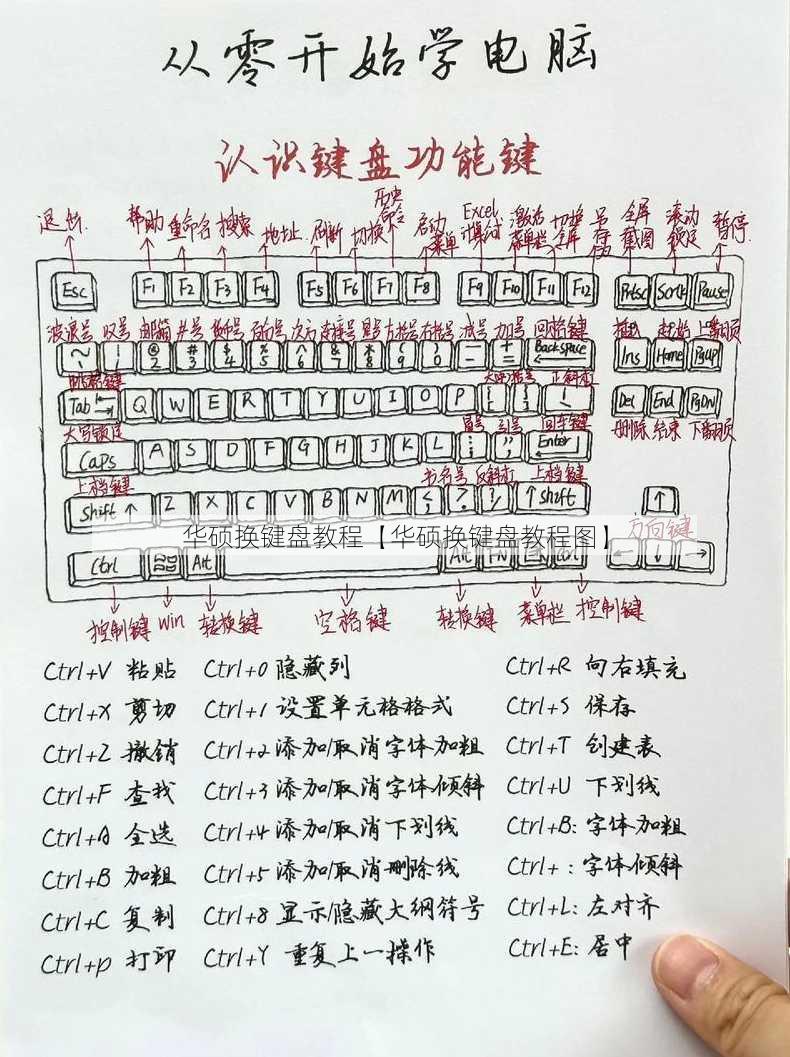 从零开始学电脑
认识键盘功能键
退出 帮助 重命名 搜索 地址 刷新 切换 启动菜单 Excel 激活菜单栏 切换全屏 另存为 全屏截图 滚动锁定 暂停
Esc F1 F2 F3 F4 F5 F6 F7 F8 F9 F10 F11 F12 Prtsc Scrlk Pause
波浪号 叹号 邮箱 井号 百分号 次方 连接号 星号 左括号 右括号 减号 加号 回格键 插入 起始 上翻页
~ ! @ 2 # 3 $ 4 % 5 ^ 6 & 7 * 8 ( 9 ) 0 - + = Backspace Ins Home PgUP
跳格键 大中括号 正斜杠
Tab Q W E R T Y U I O P Del End PgDN
大写锁定 冒号 引号 回车键 删除 结束 下翻页
Caps A S D F G H J K L Enter
上档键 书名号 反斜杠 上档键
shift ↑ Z X C V B N M ↑ shift ↑
华硕换键盘教程【华硕换键盘教程图】 方向键
Ctrl Alt Alt FN Ctrl ← ↓ →
控制键 win 转换键 空格键 转换键 菜单栏 控制键
Ctrl+V 粘贴 Ctrl+0 隐藏列 Ctrl+R 向右填充
Ctrl+X 剪切 Ctrl+1 设置单元格格式 Ctrl+S 保存
Ctrl+Z 撤销 Ctrl+2 添加/取消字体加粗 Ctrl+T 创建表
Ctrl+F 查找 Ctrl+3 添加/取消字体倾斜 Ctrl+U 下划线
Ctrl+A 全选 Ctrl+4 添加/取消下划线 Ctrl+B: 字体加粗
Ctrl+B 加粗 Ctrl+5 添加/取消删除线 Ctrl+ : 字体倾斜
Ctrl+C 复制 Ctrl+8 显示/隐藏大纲符号 Ctrl+L: 左对齐
Ctrl+p 打印 Ctrl+Y 重复上一操作 Ctrl+E: 居中